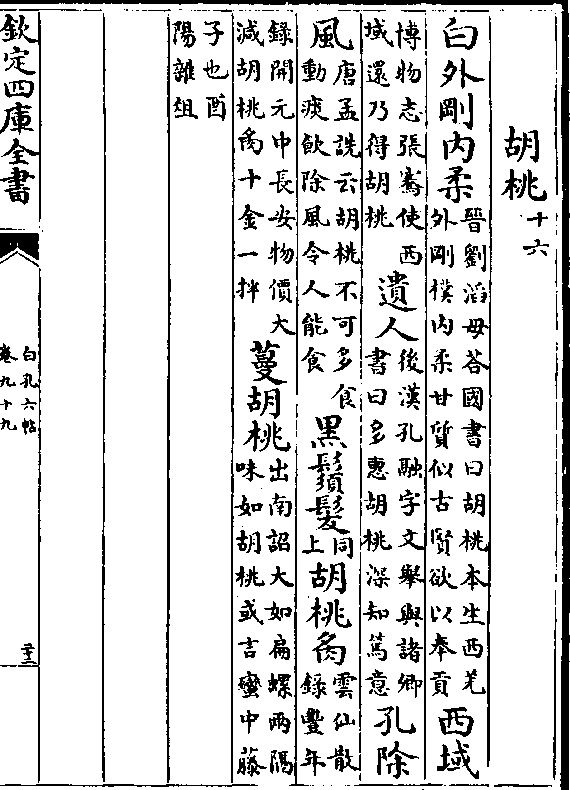 胡桃十六
白外剛内柔晉劉滔母荅國書曰胡桃本生西羌
外剛樸内柔甘質似古賢欲以奉貢西域
博物志張騫使西
域還乃得胡桃遺人後漢孔融字文舉與諸卿
書曰多惠胡桃深知篤意孔除
風唐孟詵云胡桃不可多食
動痰飲除風令人能食黒鬚髮同
上胡桃肉雲仙散
錄豐年
錄開元中長安物價大
減胡桃肉十金一拌蔓胡桃出南詔大如扁螺兩隔
味如胡桃或言蠻中藤
子也酉
陽雜俎
欽定四庫全書
白孔六帖
卷九十九